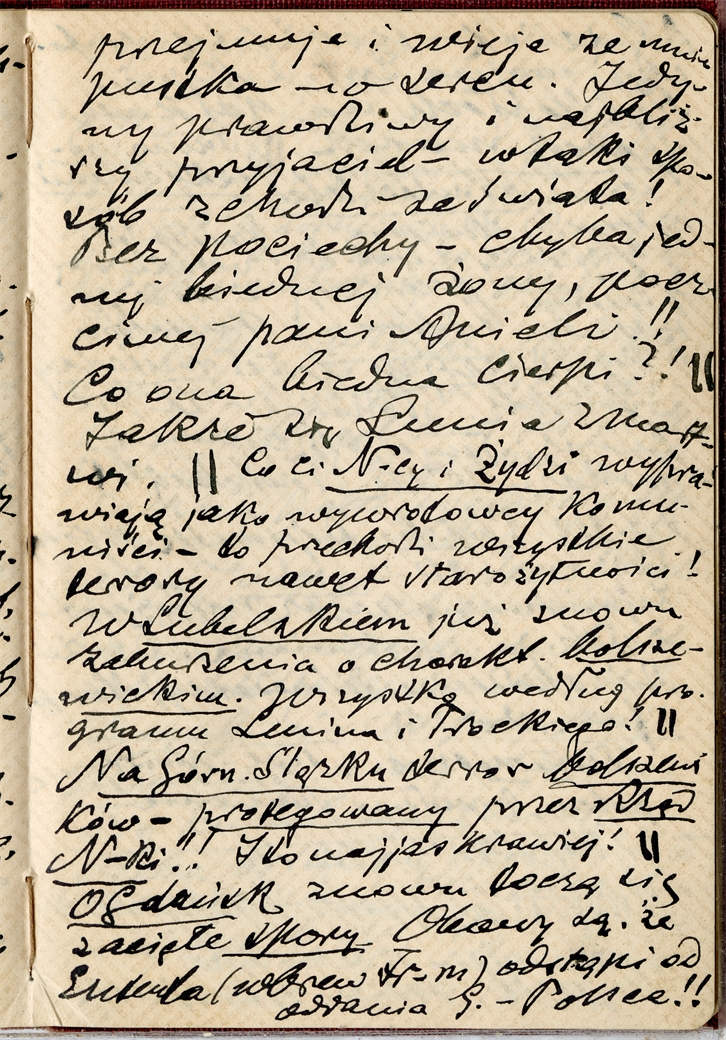 przejmuje i wieje ze mnie
pustka – w sercu. Jedy-
ny prawdziwy i najbliż-
szy przyjaciel – w taki spo-
sób zchodzi ze świata!
Bez pociechy – chyba jed-
nej biednej żony, pocz
ciwej pani Anieli!!
Co ona biedna cierpi?! ||
Jakże się Lunia zmart-
wi. || Co ci N-cy i Żydzi wypra-
wiają jako wywrotowcy Komu-
niści – to przechodzi wszystkie
terrory nawet starożytności!
W Lubelskiem już znowu
zaburzenia o charakt. bolsze-
wickim. Wszystko według pro-
gramu Lenina i Trockiego! ||
Na Górn. Śląsku terror bolszewi
ków – protegowany przez Rząd
N-ki!! I to najjaskrawiej! ||
O Gdańsk znowu toczą się
zacięte spory. Obawy są, że
Ententa (wbrew Fr-m) odstąpi od
oddania G. – Polsce!!